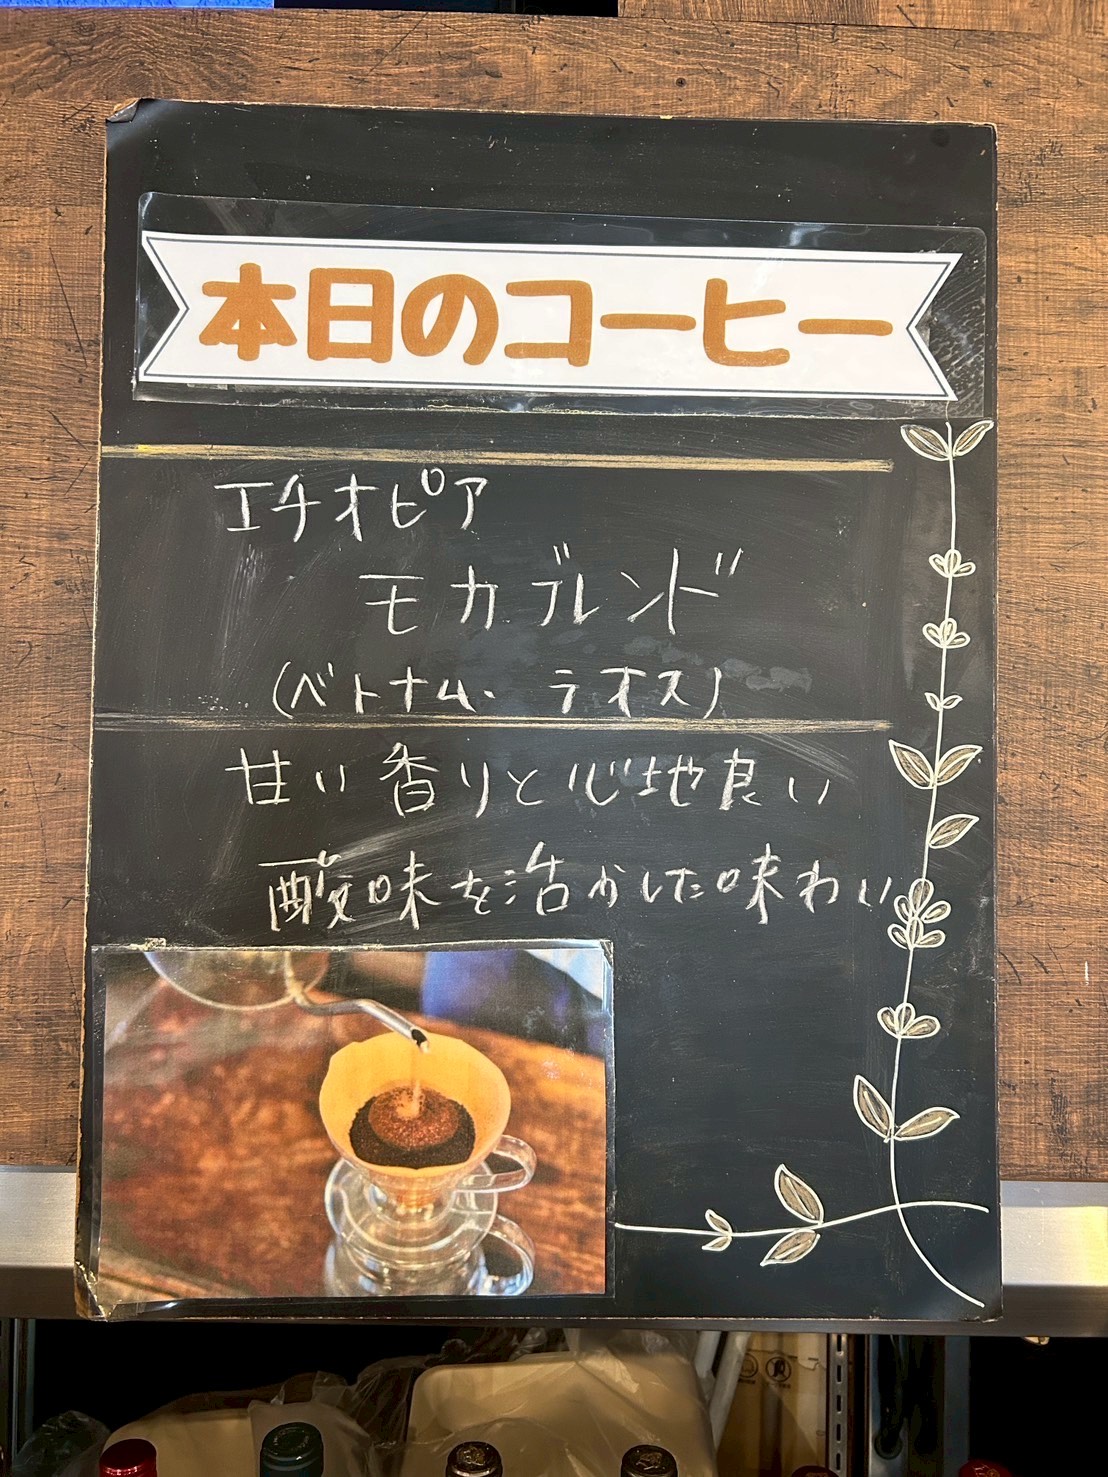 本日のコーヒー
エチオピア
モカブレンド
(ベトナム・ラオス)
甘い香りと心地良い
酸味を活かした味わい